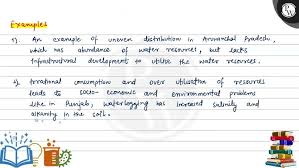 Examples
1). An example of uneven distribution in Arunachal Pradesh,
which has abundance of water resources, but lacks
infrastructural development to utilise the water resources.
2). Irrational consumption and over utilisation of resources
leads to socio-economic and environmental problems
like in Punjab, waterlogging has increased salinity and
alkalinity in the soil.